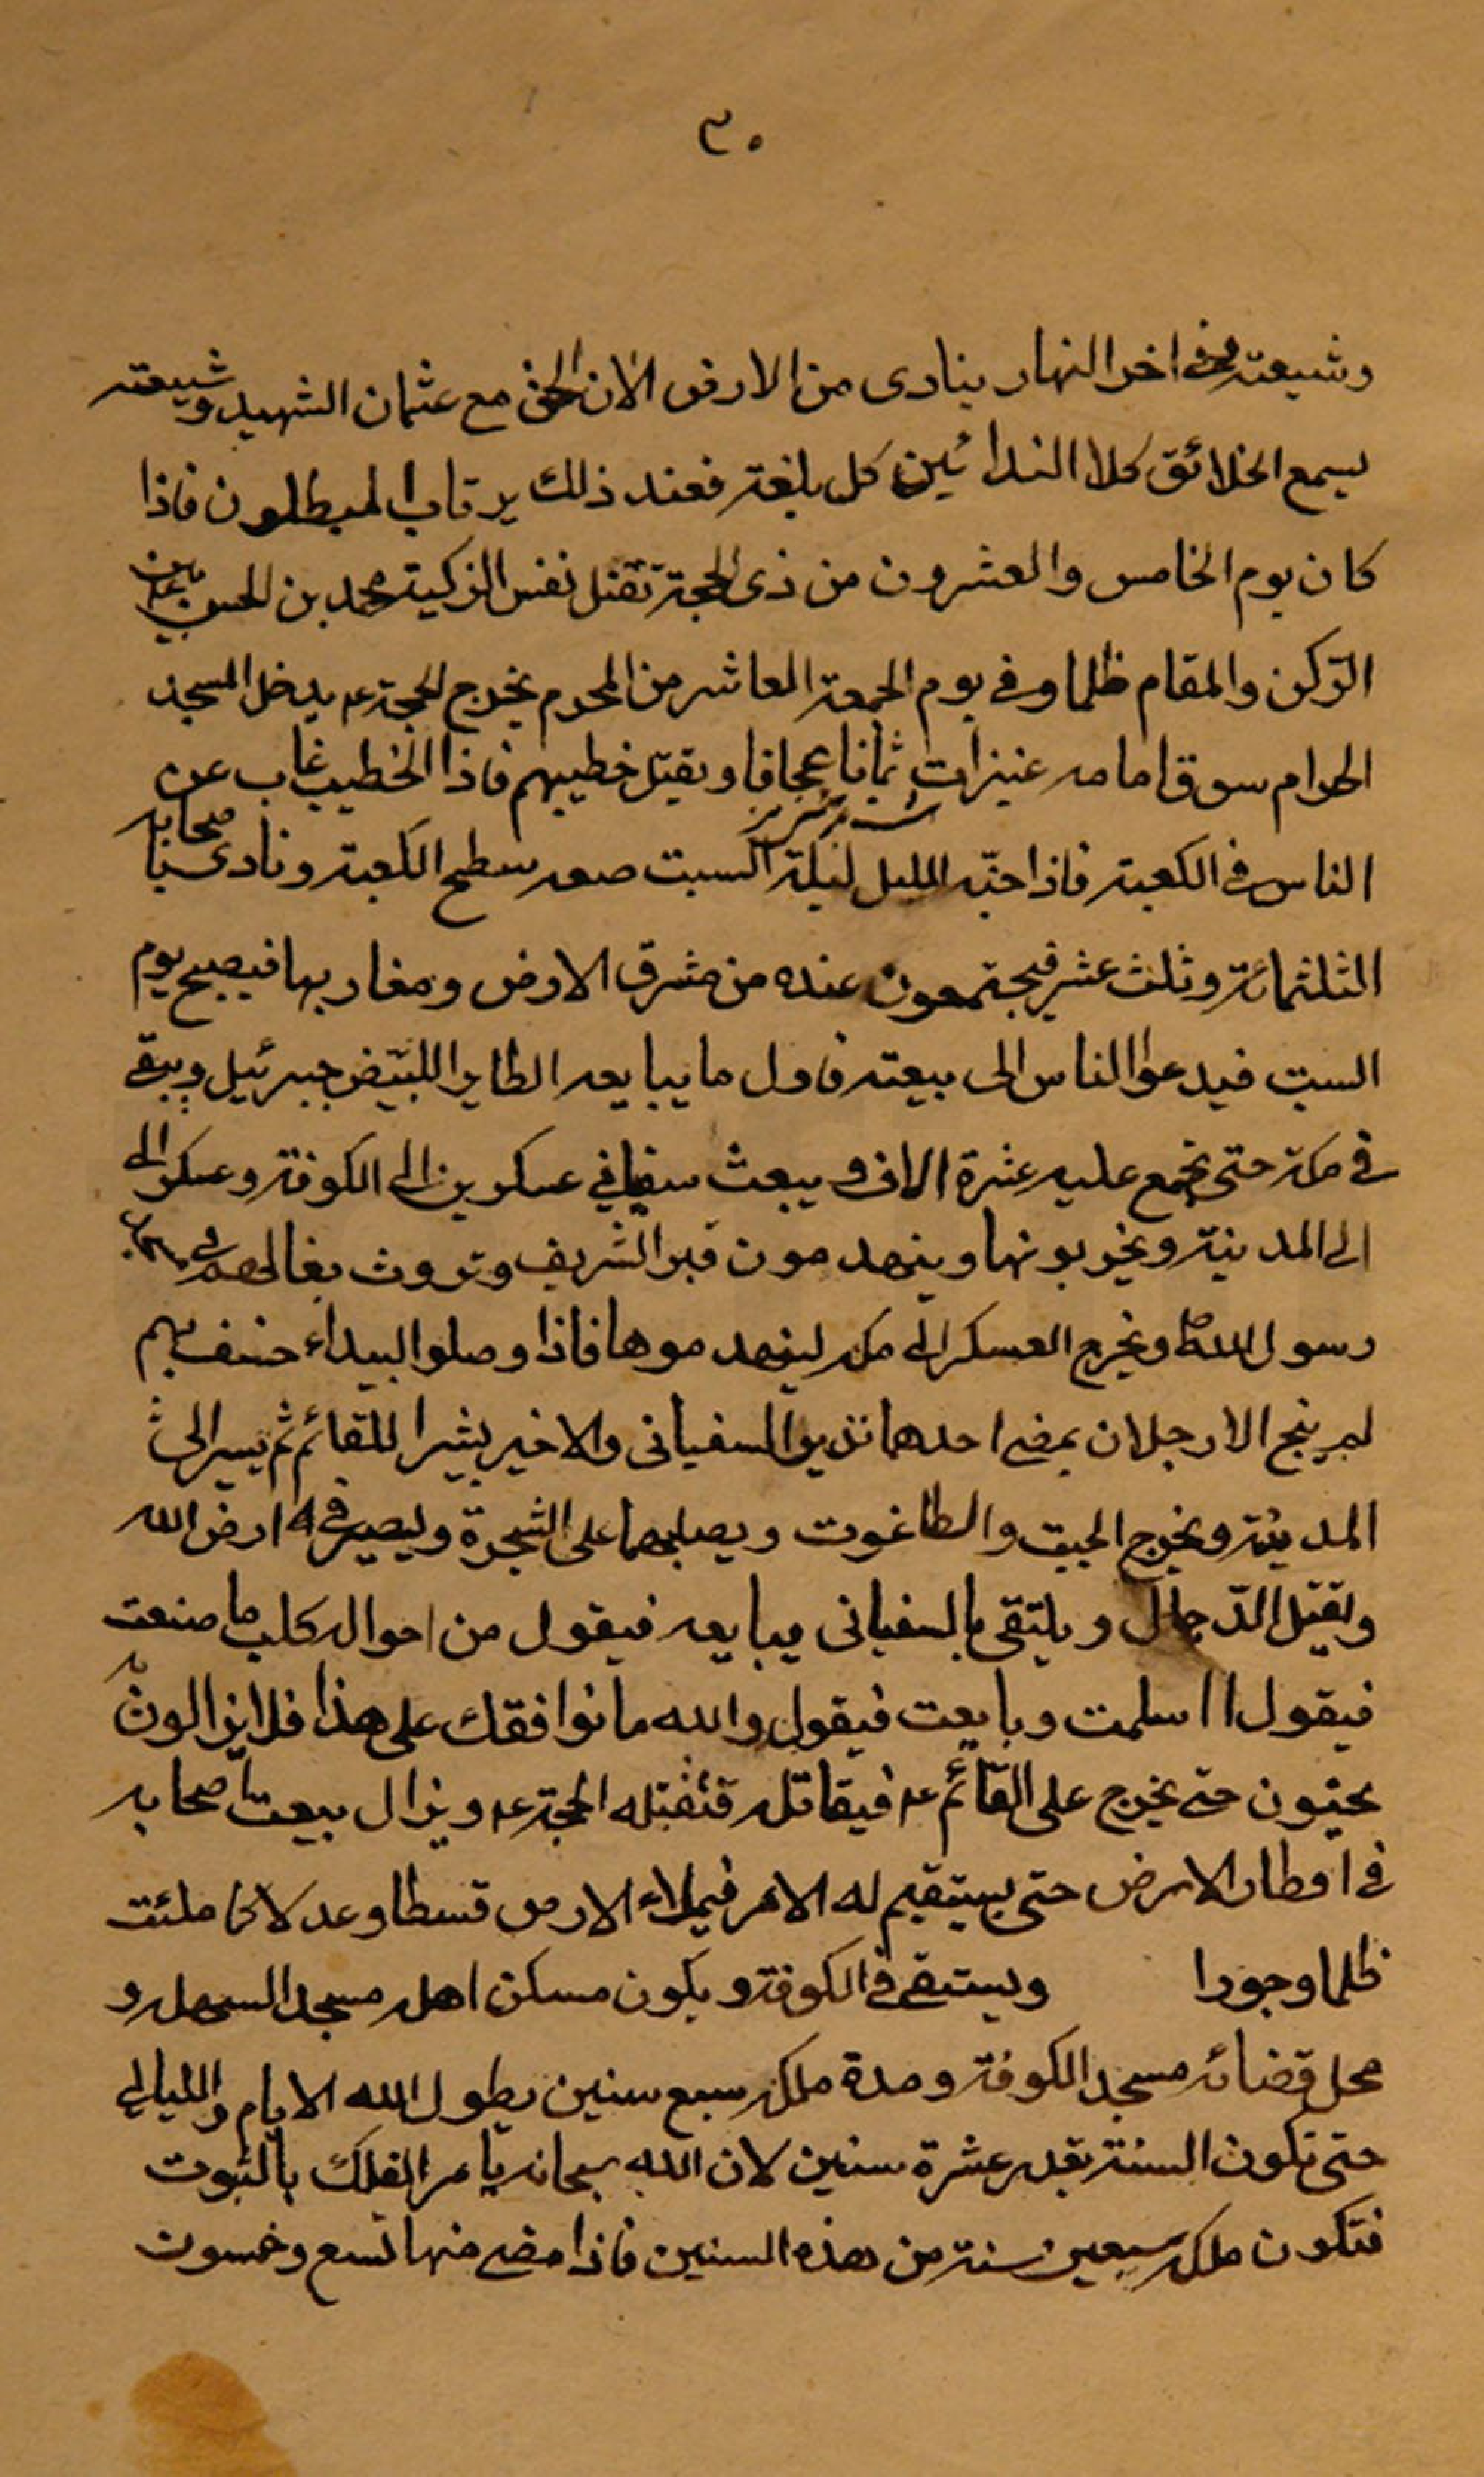 ٣٠
وشيعته وفى اخر النهار ينادى من الارض الان الحق مع عثمان الشهيد وشيعته
يسمع الخلائق كلا الندائين كل بلغته فعند ذلك يرتاب المبطلون فاذا
كان يوم الخامس والعشرون من ذى الحجة تقتل نفس الزكية محمد بن الحسن بين
الركن والمقام ظلما وفى يوم الجمعة العاشر من المحرم يخرج الحجة ع يدخل المسجد
الحرام سوق امامه عنيزات ثمانا عجافا ويقتل خطيبهم فاذا الخطيب غاب عن
الناس فى الكعبة فاذا جنّه الليل ليلة السبت صعد سطح الكعبة ونادى صحابه
الثلثمائة وثلث عشر فيجتمعون عنده من مشرق الارض ومغاربها فيصبح يوم
السبت فيدعوا الناس الى بيعته فاول ما يبايعه الطاير الابيض جبرئيل ويبقى
فى مكة حتى يجمع عليه عشرة الاف ويبعث سفيانى عسكرين الى الكوفة وعسكر الى
الى المدينة ويخربونها وينهدمون قبر الشريف وتروث بغالهم فى
رسول الله ص ويخرج العسكر الى مكه لينهدموها فاذا وصلوا البيداء خسف بهم
لم ينج الا رجلان يمضى احدهما نذيرا السفيانى والاخير بشيرا للقائم ثم يسير الى
المدينة ويخرج الجبت والطاغوت ويصلبهما على الشجرة ويسير فى ارض الله
ويقتل الدّجال ويلتقى بالسفيانى يبايعه فيقول من احواله كلب ما صنعت
فيقول اسلمت وبايعت فيقول والله ما نوافقك على هذا فلا يزالون به
حتى يخرج على القائم ع فيقاتله فتقتله الحجة ع ويزال بيعت اصحابه
فى اقطار الارض حتى يستقيم له الامر فيملاء الارض قسطا وعدلا كما ملئت
ظلما وجورا ويستقى فى الكوفة ويكون مسكن اهله مسجد السهله و
محل قضائه مسجد الكوفة ومدة ملكه سبع سنين يطول الله الايام والليالى
حتى تكون السنة بقدر عشرة سنين لان الله سبحانه يامر الفلك بالثبوت
فتكون ملكه سبعين سنة من هذه السنين فاذا مضى منها تسع وخمسون